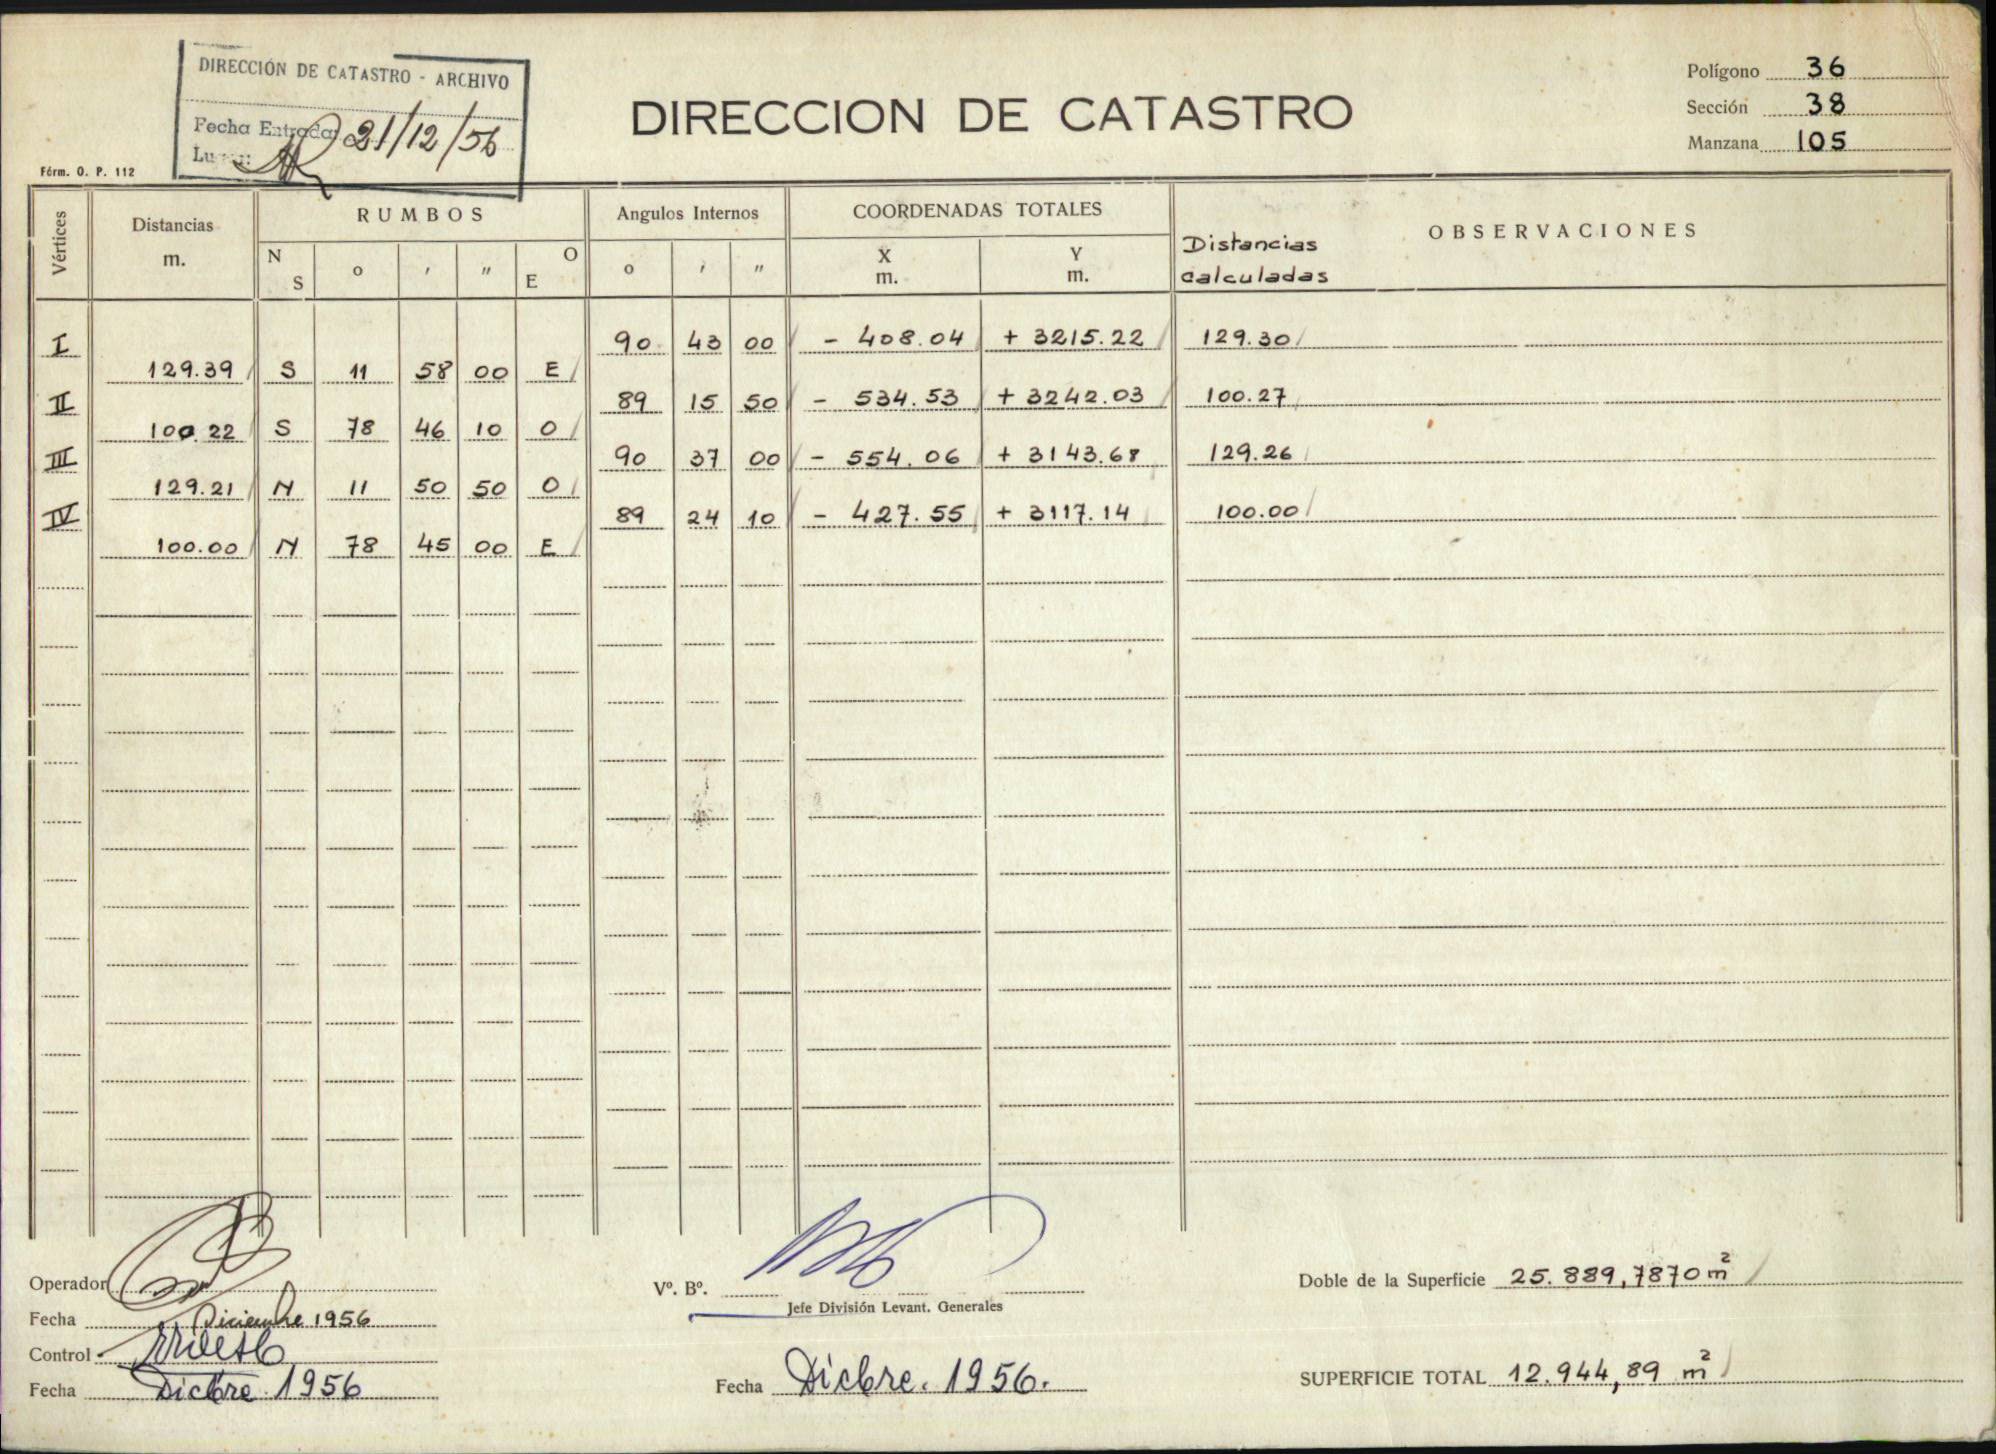 DIRECCIÓN DE CATASTRO - ARCHIVO
Fecha Entrada: 21/12/56
DIRECCION DE CATASTRO
Polígono 36
Sección 38
Manzana 105
Fórm. O. P. 112
Vértices
Distancias m.
RUMBOS
N S o ′ ″ O E
Angulos Internos
o ′ ″
COORDENADAS TOTALES
X m. Y m.
Distancias calculadas
OBSERVACIONES
I 90 43 00 - 408.04 + 3215.22 129.30
129.39 S 11 58 00 E
II 89 15 50 - 534.53 + 3242.03 100.27
100.22 S 78 46 10 O
III 90 37 00 - 554.06 + 3143.68 129.26
129.21 N 11 50 50 O
IV 89 24 10 - 427.55 + 3117.14 100.00
100.00 N 78 45 00 E
Operador
Fecha Diciembre 1956
Control
Fecha Dicbre 1956
Vº. Bº.
Jefe División Levant. Generales
Fecha Dicbre. 1956.
Doble de la Superficie 25.889,7870 m²
SUPERFICIE TOTAL 12.944,89 m²